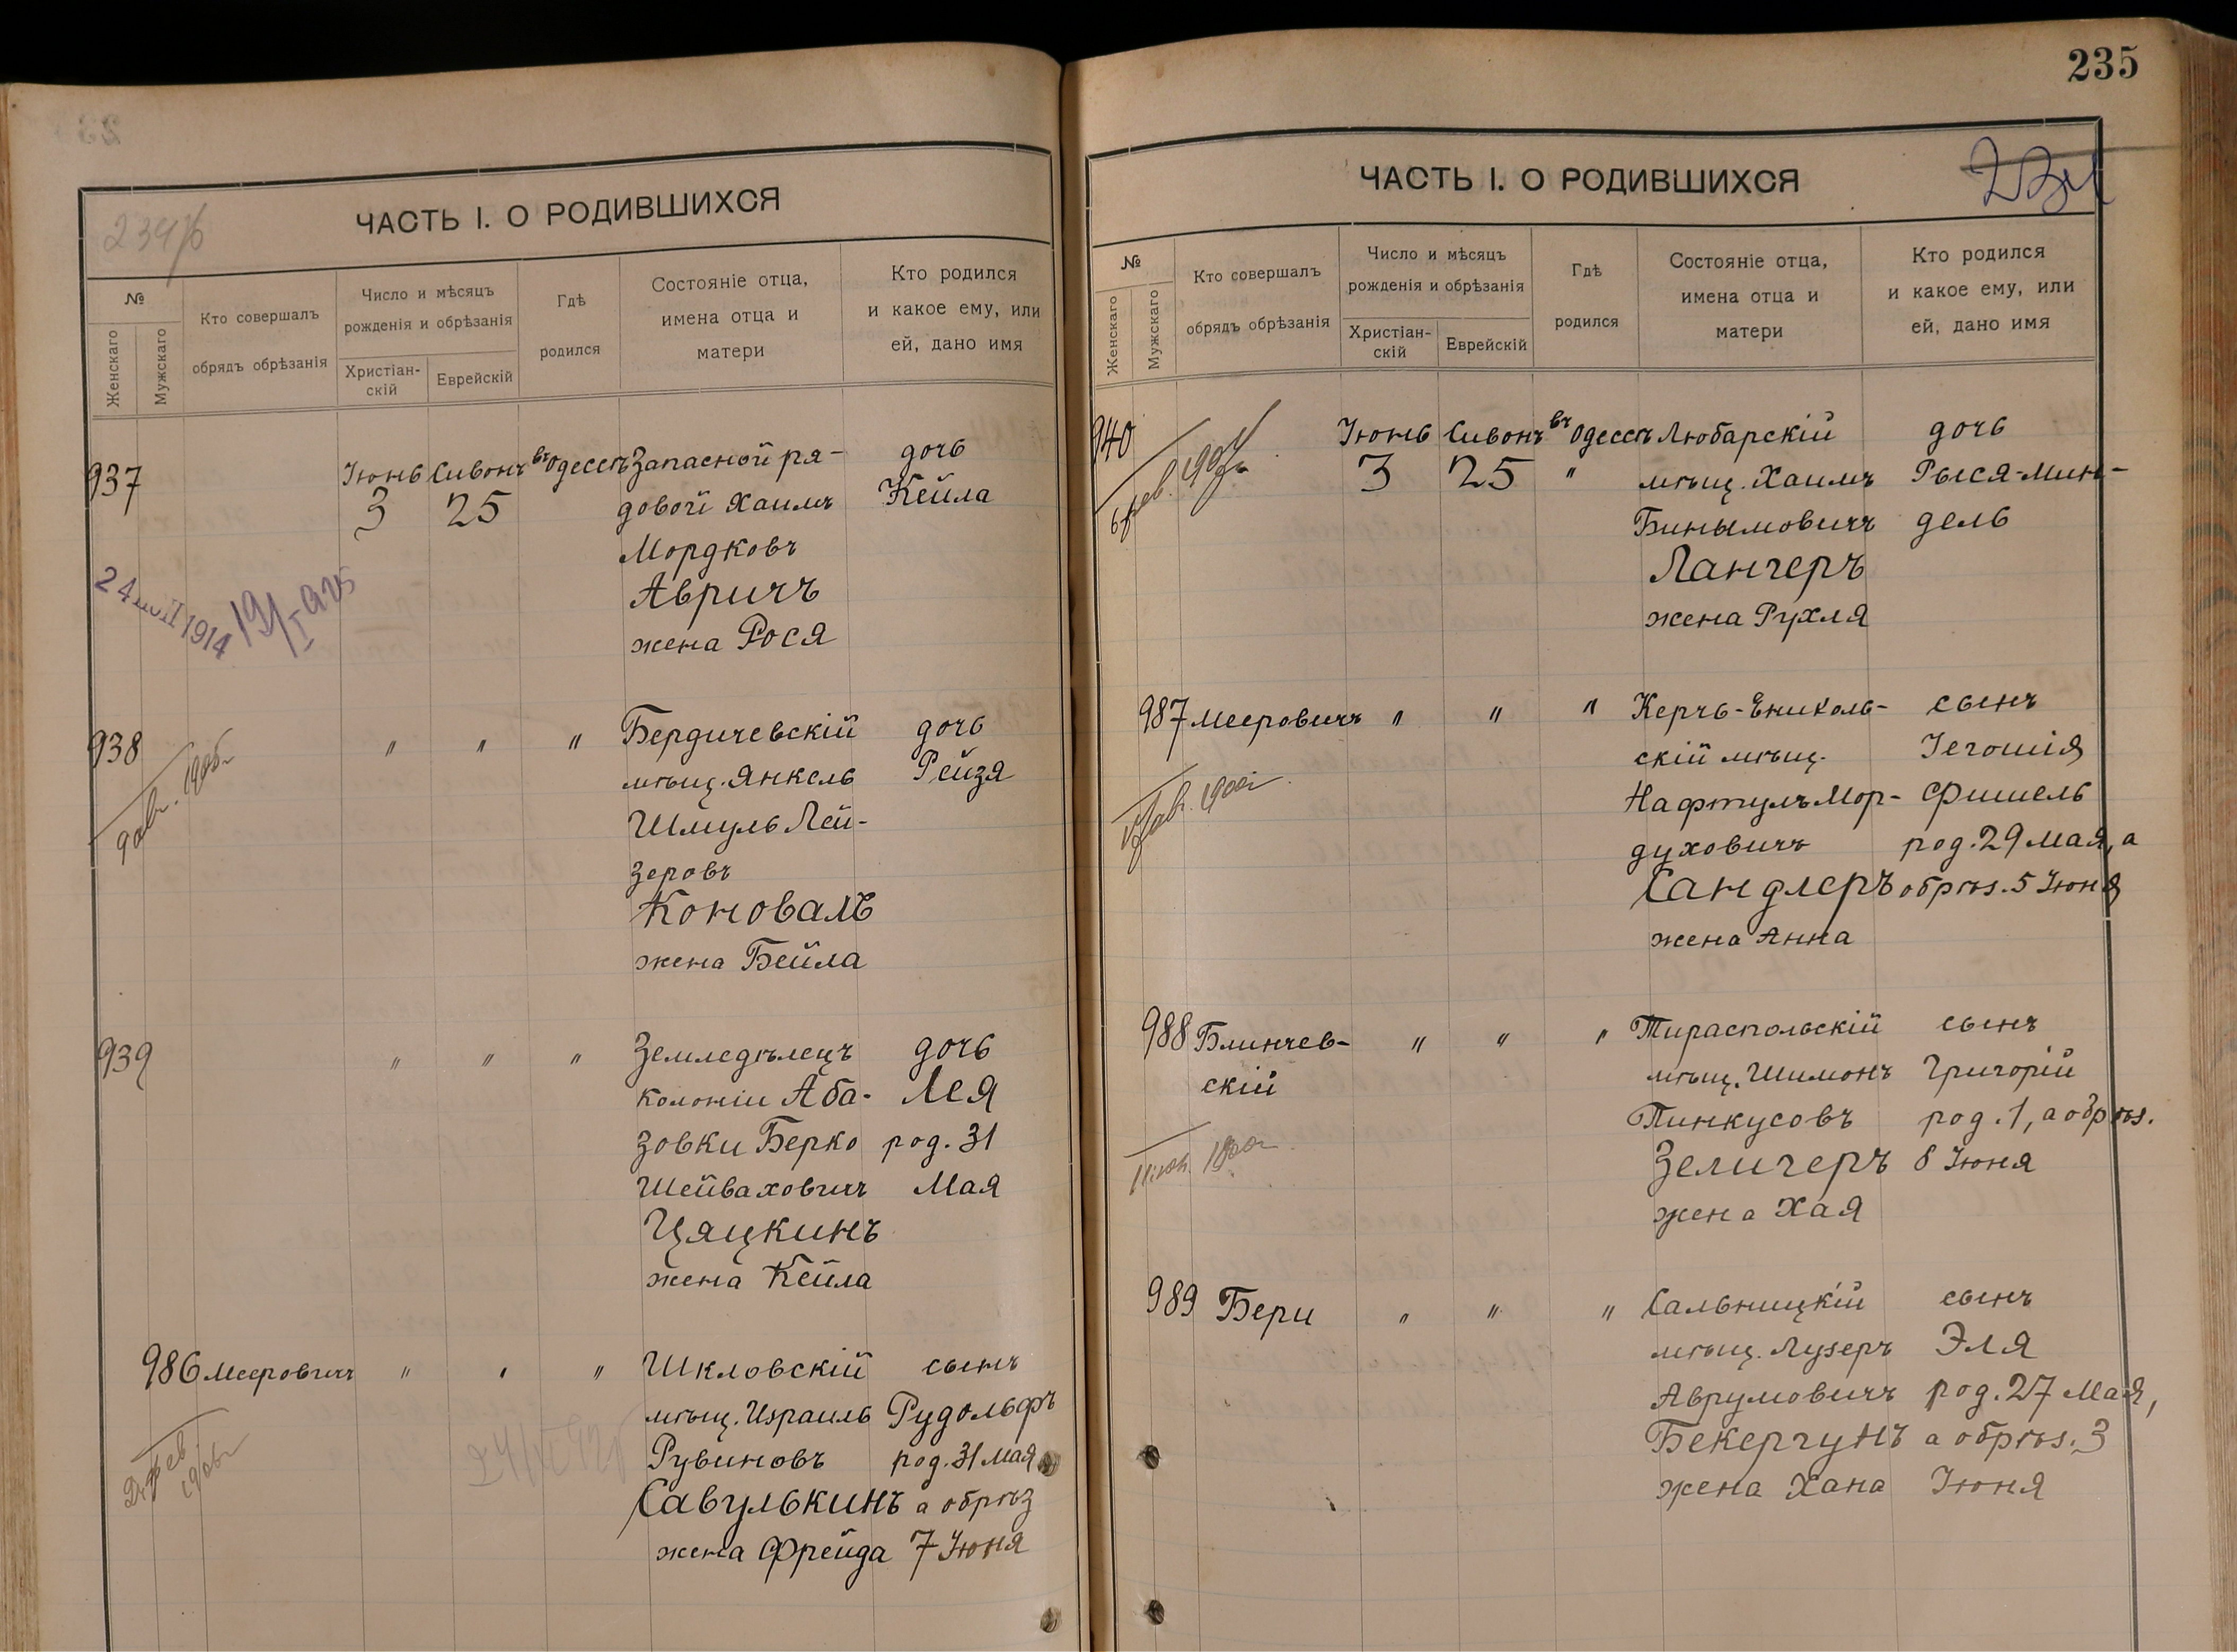 235
ЧАСТЬ I. О РОДИВШИХСЯ
№
Женскаго
Мужскаго
Кто совершалъ
обрядъ обрѣзанія
Число и мѣсяцъ
рожденія и обрѣзанія
Христіан-
скій
Еврейскій
Гдѣ
родился
Состояніе отца,
имена отца и
матери
Кто родился
и какое ему, или
ей, дано имя
937 Іюнь Сивонъ въ Одессѣ Запасной ря- дочь
3 25 довой Хаимъ Кейла
Мордковъ
Авричъ
жена Рося
1914
938 " " " Бердичевскій дочь
мѣщ. Янкель Рейзя
Шмуль Лей-
зеровъ
Коновалъ
жена Бейла
939 " " " Земледѣлецъ дочь
колоніи Аба- Лея
зовки Берко род. 31
Шейваховичъ Мая
Цяцкинъ
жена Кейла
986 Мееровичъ " " " Шкловскій сынъ
мѣщ. Израиль Рудольфъ
Рувиновъ род. 31 Мая
Савулькинъ а обрѣз
жена Фрейда 7 Іюня
ЧАСТЬ I. О РОДИВШИХСЯ
№
Женскаго
Мужскаго
Кто совершалъ
обрядъ обрѣзанія
Число и мѣсяцъ
рожденія и обрѣзанія
Христіан-
скій
Еврейскій
Гдѣ
родился
Состояніе отца,
имена отца и
матери
Кто родился
и какое ему, или
ей, дано имя
940 Іюнь Сивонъ въ Одессѣ Любарскій дочь
3 25 " мѣщ. Хаимъ Рыся-Мин-
Бинымовичъ дель
Лангеръ
жена Рухля
987 Мееровичъ " " " Керчь-Ениколь- сынъ
скій мѣщ. Іегошія
Нафтулъ Мор- Фишель
духовичъ род. 29 Мая, а
Сандлеръ обрѣз. 5 Іюня
жена Анна
988 Блинчев- " " " Тираспольскій сынъ
скій мѣщ. Шимонъ Григорій
Пинкусовъ род. 1, а обрѣз.
Зелигеръ 8 Іюня
жена Хая
989 Бери " " " Сальницкій сынъ
мѣщ. Лузеръ Эля
Аврумовичъ род. 27 Мая,
Бекергунъ а обрѣз. 3
жена Хана Іюня